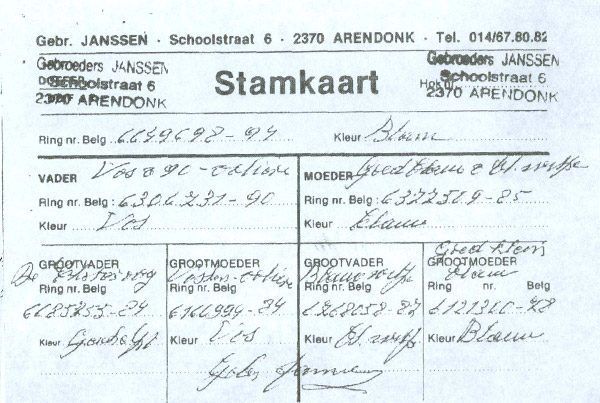 Gebr. JANSSEN · Schoolstraat 6 · 2370 ARENDONK · Tel. 014/67.80.82
Gebroeders JANSSEN
Schoolstraat 6
2370 ARENDONK
Stamkaart
Gebroeders JANSSEN
Schoolstraat 6
2370 ARENDONK
Hok nr.
Ring nr. Belg 6649698-94 Kleur Blauw
VADER Vos
Ring nr. Belg : 6306231-90
Kleur Vos
MOEDER Goed Blauw
Ring nr. Belg : 6372319-85
Kleur Blauw
GROOTVADER De
Ring nr. Belg
6685255-84
Kleur
GROOTMOEDER
Ring nr. Belg
6166994-84
Kleur Vos
GROOTVADER Blauw
Ring nr. Belg
6268058-82
Kleur Bl.
Goed Klein
GROOTMOEDER Blauw
Ring nr. Belg
6121310-78
Kleur Blauw